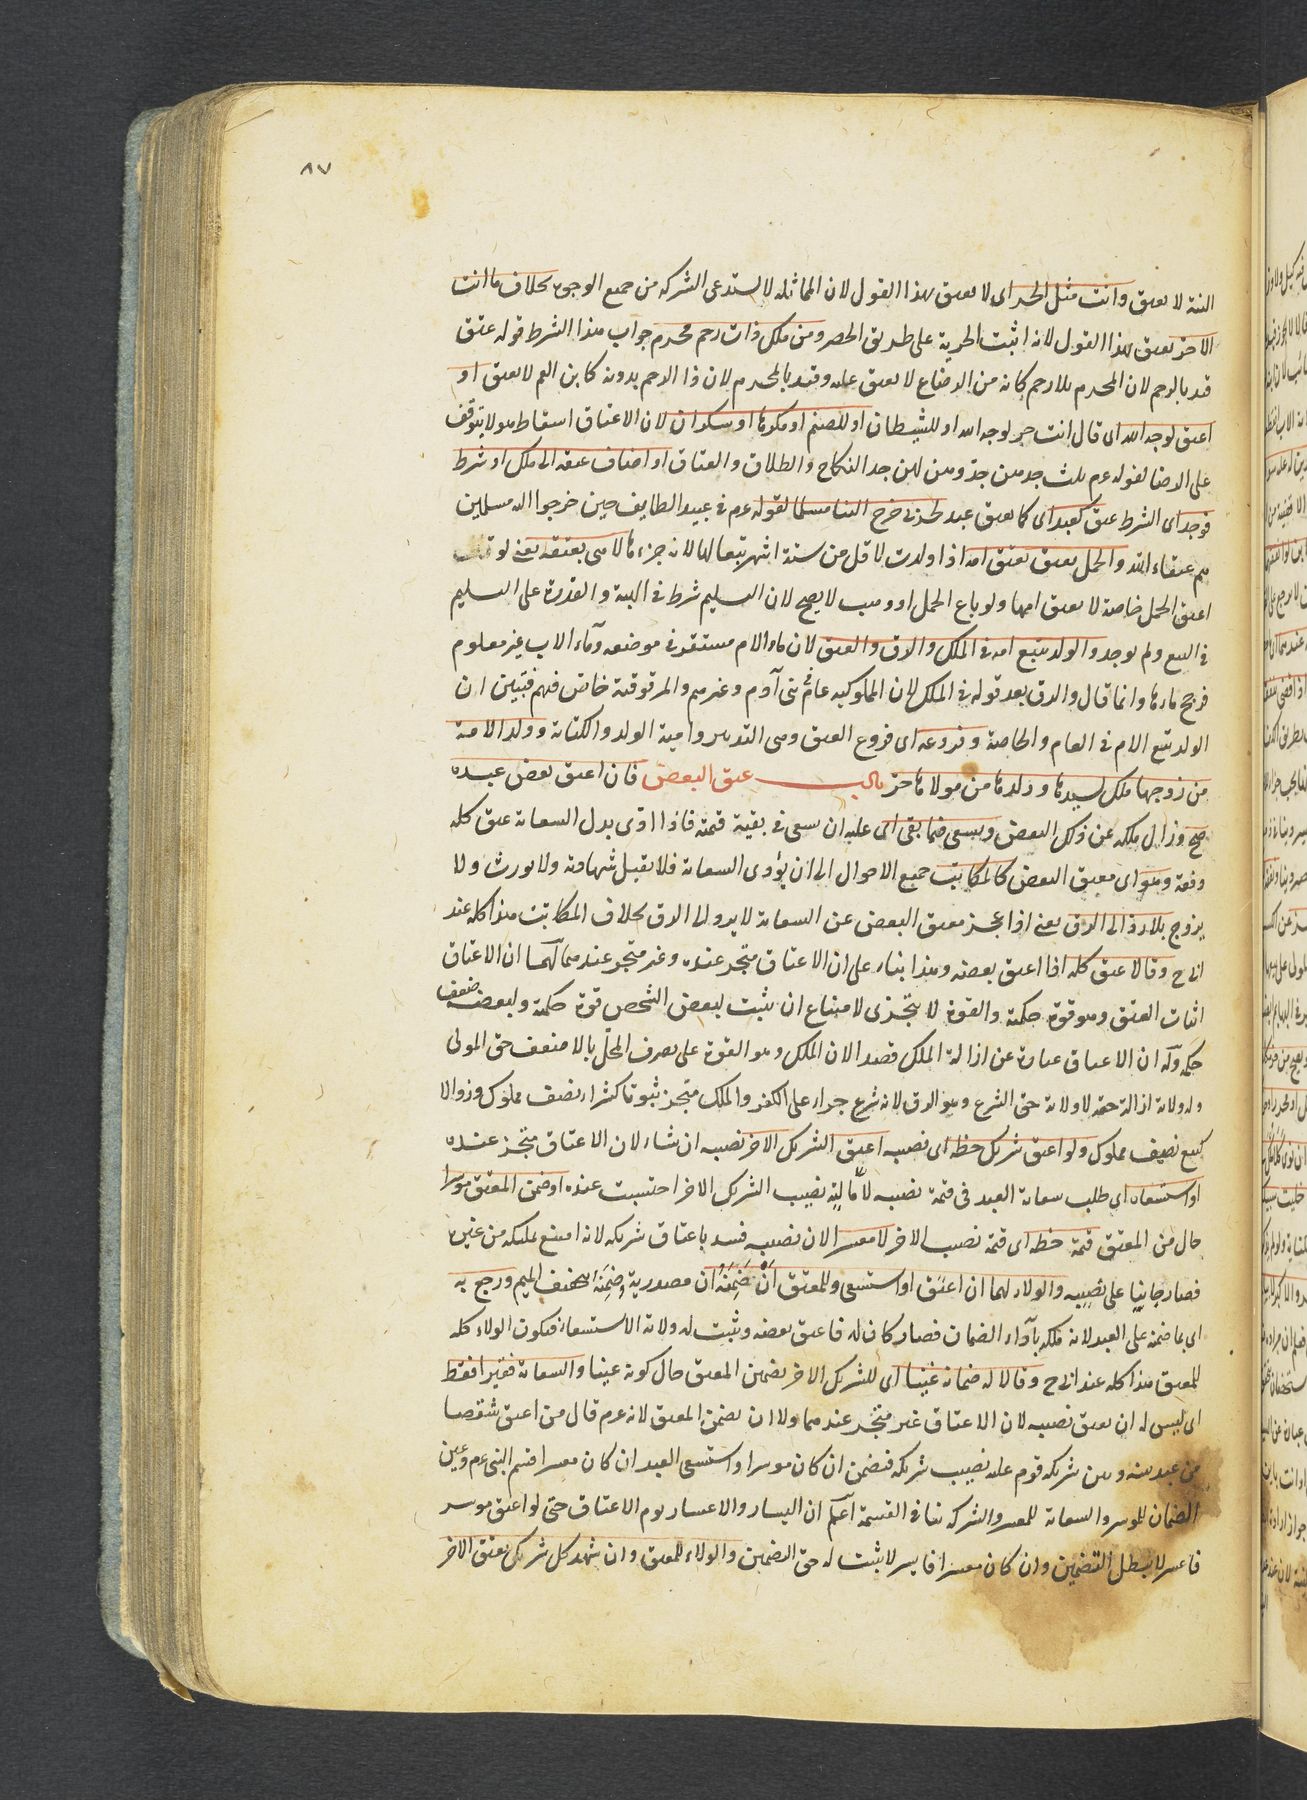 ٨٧
النية لا يعتق وانت مثل الحر اى لا يعتق بهذا القول لان المماثله لا يستدعى الشركه من جميع الوجوه بخلاف ما انت
الا حر يعتق بهذا القول لانه اثبت الحرية على طريق الحصر ومن ملك ذات رحم محرم جواب هذا الشرط قوله عتق
قيد بالرحم لان المحرم بلا رحم كانه من الرضاع لا يعتق عليه وقيد بالمحرم لان ذا الرحم بدونه كابن العم لا يعتق او
اعتق لوجه الله اى قال انت حر لوجه الله او للشيطان او للصنم او مكرها او سكران لان الاعتاق اسقاط هو لا يتوقف
على الرضا لقوله عم ثلث جدهن جد وهزلهن جد النكاح والطلاق والعتاق او اضاف عتقه الى ملك او شرط
فوجد اى الشرط عتق كعبد اى كما يعتق عبد لحربى خرج الينا مسلما لقوله عم فى عبيد الطايف حين خرجوا اليه مسلمين
هم عتقاء الله والحمل يعتق بعتق امه اذا ولدت لاقل من ستة اشهر تبعا لها لانه جزءها لا هى بعتقه يعنى لو
اعتق الحمل خاصة لا يعتق امها ولو باع الحمل او وهب لا يصح لان التسليم شرط فى الهبة والقدرة على التسليم
فى البيع ولم يوجد والولد يتبع امه فى الملك والرق والعتق لان ماء الام مستقر فى موضعه وماء الاب غير معلوم
فرجح ماءها وانما قال والرق بعد قوله فى الملك لان المملوكيه عام فى بنى آدم وغيرهم والمرقوقية خاص فيهم فتبين ان
الولد يتبع الام فى العام والخاصة وفروعه اى فروع العتق وهى التدبير وامية الولد والكتابة وولد الامة
من زوجها ملك لسيدها وولدها من مولاها حر باب عتق البعض فان اعتق بعض عبده
صح وزال ملكه عن ذلك البعض ويسعى فيما بقى اى عليه ان يسعى فى بقية قيمته فاذا ادى بدل السعاية عتق كله
وقعة وهو اى معتق البعض كالمكاتب جميع الاحوال الى ان يؤدى السعاية فلا تقبل شهادته ولا يورث ولا
يزوج بلا رد الى الرق يعنى اذا عجز معتق البعض عن السعاية لا يرد الى الرق بخلاف المكاتب هذا كله عند
ابى ح وقالا عتق كله اذا اعتق بعضه وهذا بناء على ان الاعتاق متجز عنده وغير متجز عندهما لهما ان الاعتاق
اثبات العتق وهو قوة حكمية والقوة لا يتجزى لامتناع ان يثبت لبعض الشخص قوة حكمية ولبعضه ضعف
حكمى وله ان الاعتاق عبارة عن ازالة الملك قصدا لان الملك وهو القوة على تصرف المحل بالا منعف حق المولى
وله ولاية ازالة حقه لا ولاية حق الشرع وهو الرق لانه شرع جزاء على الكفر والملك متجز ثبوتا كشراء نصف مملوك وزوالا
كبيع نصف مملوك ولو اعتق شريك حظه اى نصيبه اعتق الشريك الاخر نصيبه ان شاء لان الاعتاق متجز عنده
او استسعاه اى طلب سعاية العبد فى قيمة نصيبه لان مالية نصيب الشريك الاخر احتبست عنده او ضمن المعتق موسرا
حال من المعتق قيمة حظه اى قيمة نصيب الاخر لا معسرا لان نصيبه فسد باعتاق شريكه لانه امتنع تمليكه من غيره
فصار جانيا على نصيبه والولاء لهما ان اعتق او استسعى وللمعتق ان ضمنه ان مصدرية وضمنه بتخفيف الميم ورجع به
اى بما ضمنه على العبد لانه ملكه باداء الضمان فصار كان له فاعتق بعضه ويثبت له ولاية الاستسعاء فيكون الولاء كله
للمعتق هذا كله عند ابى ح وقالا له ضمانه غنيا اى للشريك الاخر تضمين المعتق حال كونه غنيا والسعاية فقيرا فقط
اى ليس له ان يعتق نصيبه لان الاعتاق غير متجز عندهما ولا ان يضمن المعتق لانه عم قال من اعتق شقصا
من عبد بينه وبين شريكه قوم عليه نصيب شريكه فيضمن ان كان موسرا واستسعى العبد ان كان معسرا قسم النبى عم وعين
الضمان للموسر والسعاية للمعسر والشركه تنافى القسمة اعلم ان اليسار والاعسار يوم الاعتاق حتى لو اعتق موسر
فاعسر لا يبطل التضمين وان كان معسرا فايسر لا يثبت له حق التضمين والولاء للمعتق وان شهد كل شريك بعتق الاخر